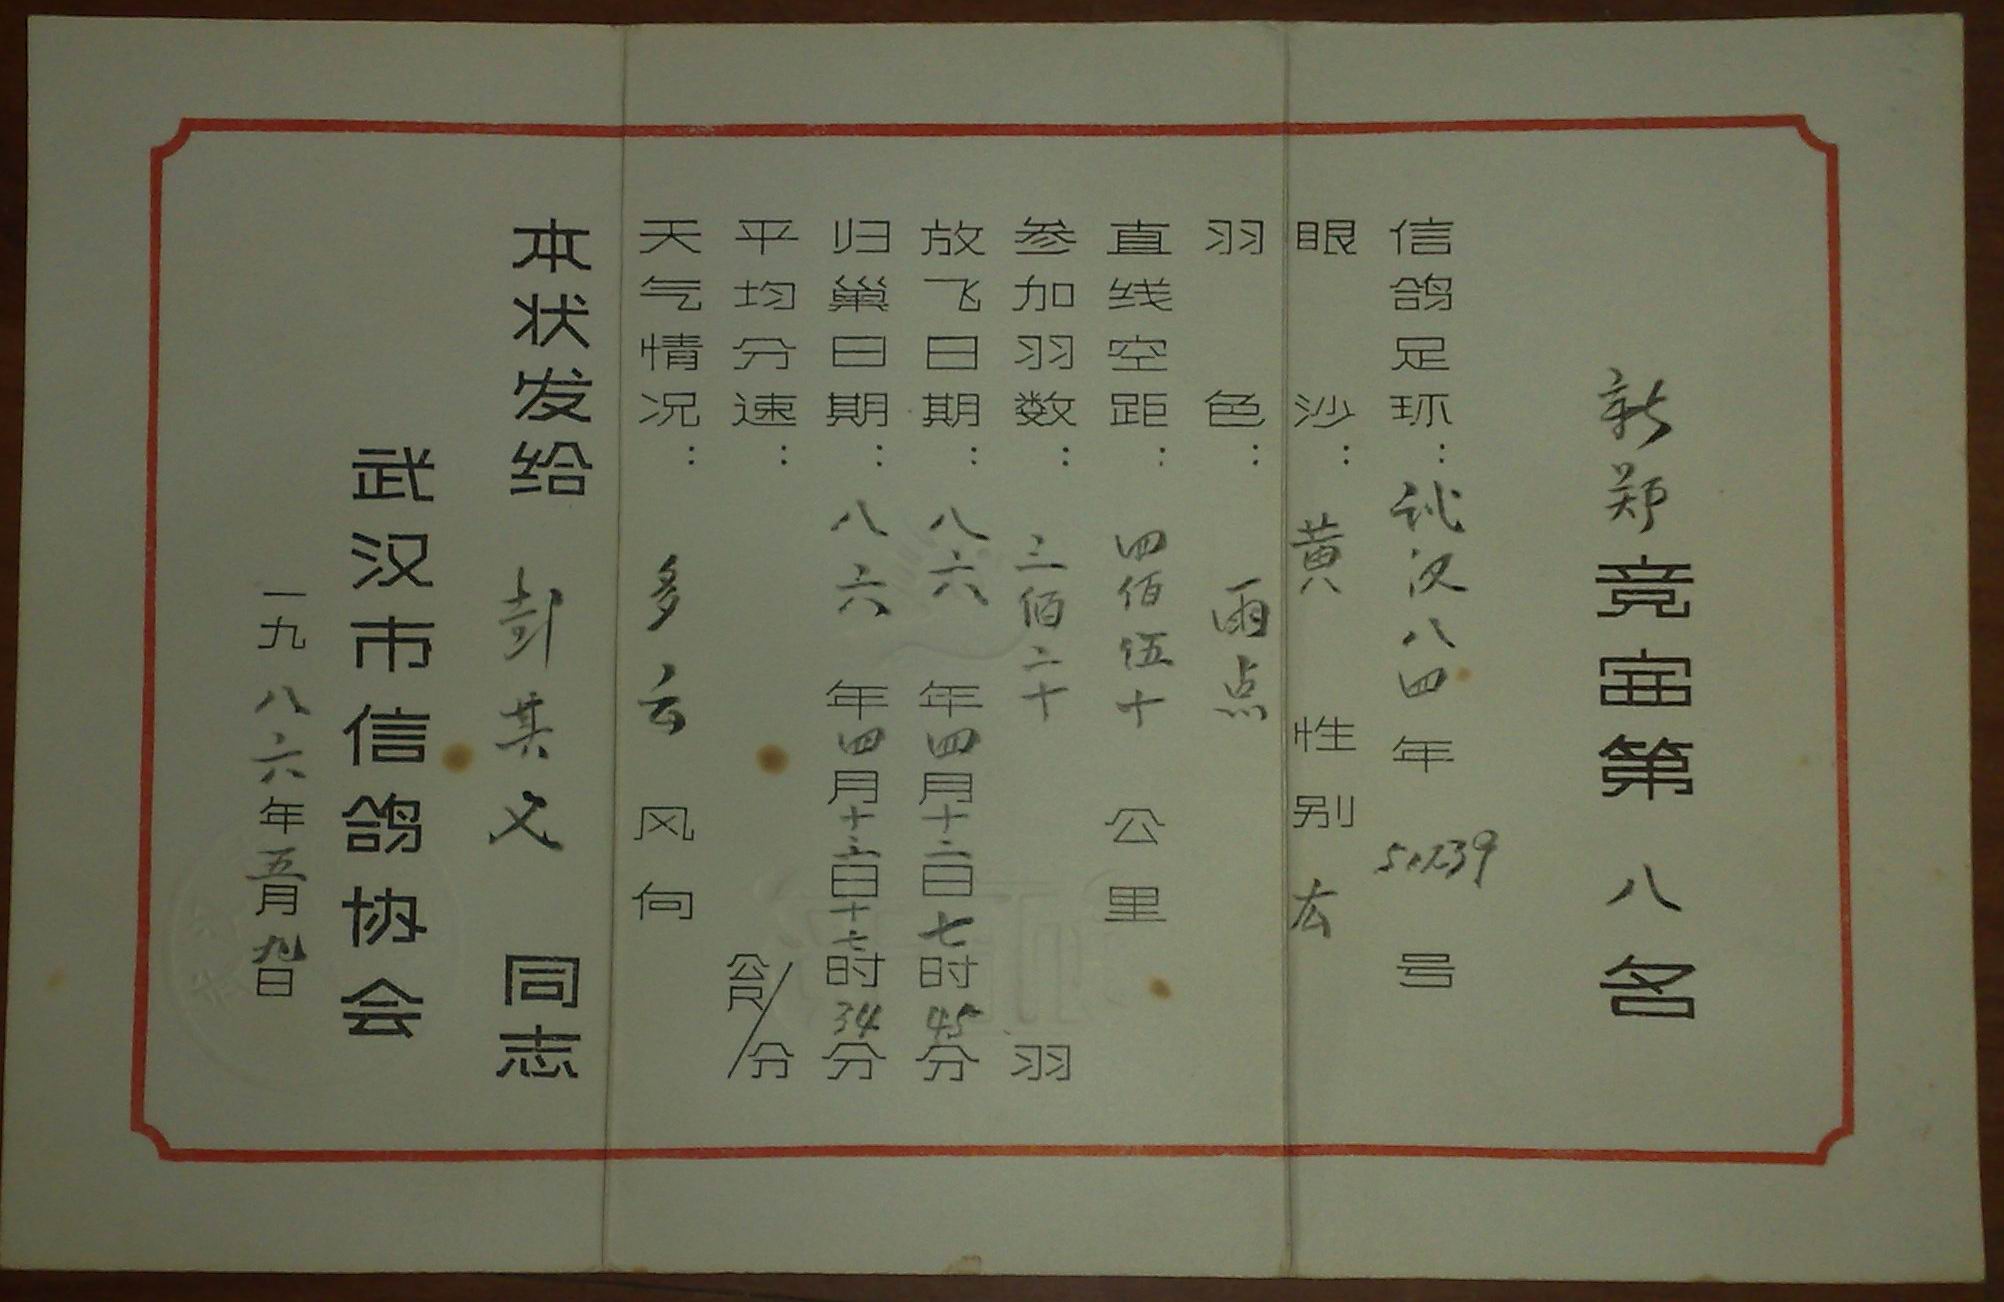 新郑竞宙第八名
信鸽足环：武汉八四年 号
眼沙：黄 性别
羽色：雨点
直线空距：四佰伍十公里
参加羽数：三佰二十羽
放飞日期：八六年四月十二日七时45分
归巢日期：八六年四月十三日十七时34分
平均分速： 公尺/分
天气情况：多云 风向
本状发给 彭其义 同志
武汉市信鸽协会
一九八六年五月九日